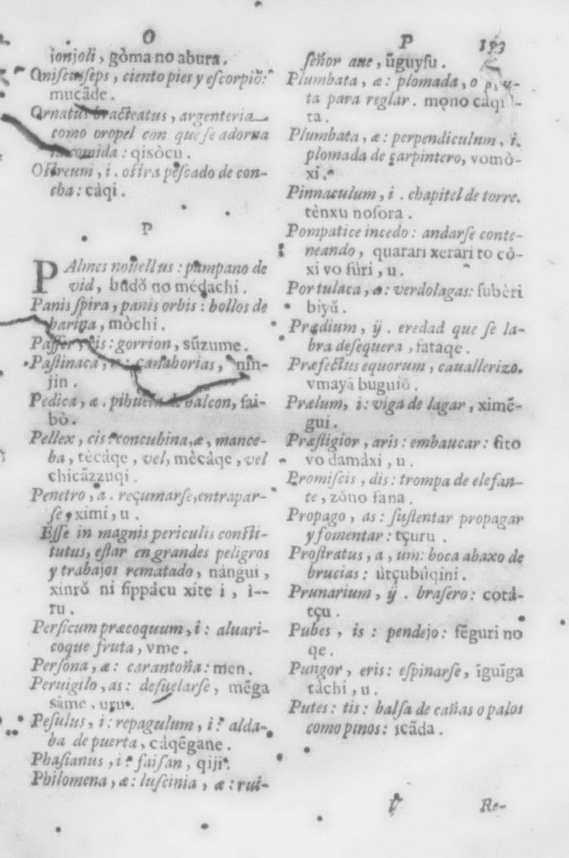 O
jonjoli, gòma no abura.
Oniscus, seps, ciento pies y escorpiõ:
mucàde.
Ornatus bracteatus, argenteria
como oropel con que se adorna
la comida: qisòcu.
Ostreum, i. ostra pescado de con-
cha: càqi.
P
PAlmes nouellus: pampano de
vid, budǒ no medachi.
Panis spira, panis orbis: bollos de
harina, mòchi.
Passer, ris: gorrion, sūzume.
Pastinaca, æ: canahorias, nin-
jin.
Pedica, æ. pihuela de halcon, fai-
bò.
Pellex, cis: concubina, æ, mance-
ba, tècàqe, vel, mècàqe, vel
chicāzzuqi.
Penetro, a. reçumarse, entrapar-
se, ximi, u.
Esse in magnis periculis consti-
tutus, estar en grandes peligros
y trabajos rematado, nangui,
xinrǒ ni sippàcu xite i, i--
ru.
Persicum præcoquum, i: aluari-
coque fruta, vme.
Persona, æ: carantoña: men.
Peruigilo, as: desuelarse, mēga
sàme, uru.
Pesulus, i: repagulum, i: alda-
ba de puerta, càqēgane.
Phasianus, i: faisan, qiji.
Philomena, æ: luscinia, æ: rui-
P
193
señor aue, ūguysu.
Plumbata, æ: plomada, o
ta para reglar. mono càqi
ta.
Plumbata, æ: perpendiculum, i.
plomada de carpintero, vomò-
xi.
Pinnaculum, i. chapitel de torre.
tènxu nosora.
Pompatice incedo: andarse conte-
neando, quarari xerari to cò-
xi vo fùri, u.
Portulaca, æ: verdolagas: suberi
biyǔ.
Prædium, ÿ. eredad que se la-
bra desequera, fataqe.
Præfectus equorum, cauallerizo.
vmaya buguiǒ.
Prælum, i: viga de lagar, ximē-
gui.
Præstigior, aris: embaucar: fito
vo damàxi, u.
Promiscis, dis: trompa de elefan-
te, zôno fana.
Propago, as: sustentar propagar
y fomentar: tçuru.
Prostratus, a, um: boca abaxo de
brucias: ùtçubùqini.
Prunarium, ÿ. brasero: cotà-
tçu.
Pubes, is: pendejo: fēguri no
qe.
Pungor, eris: espinarse, ïguïga
tàchi, u.
Putes: tis: balsa de cañas o palos
como pinos: icāda.
Re-